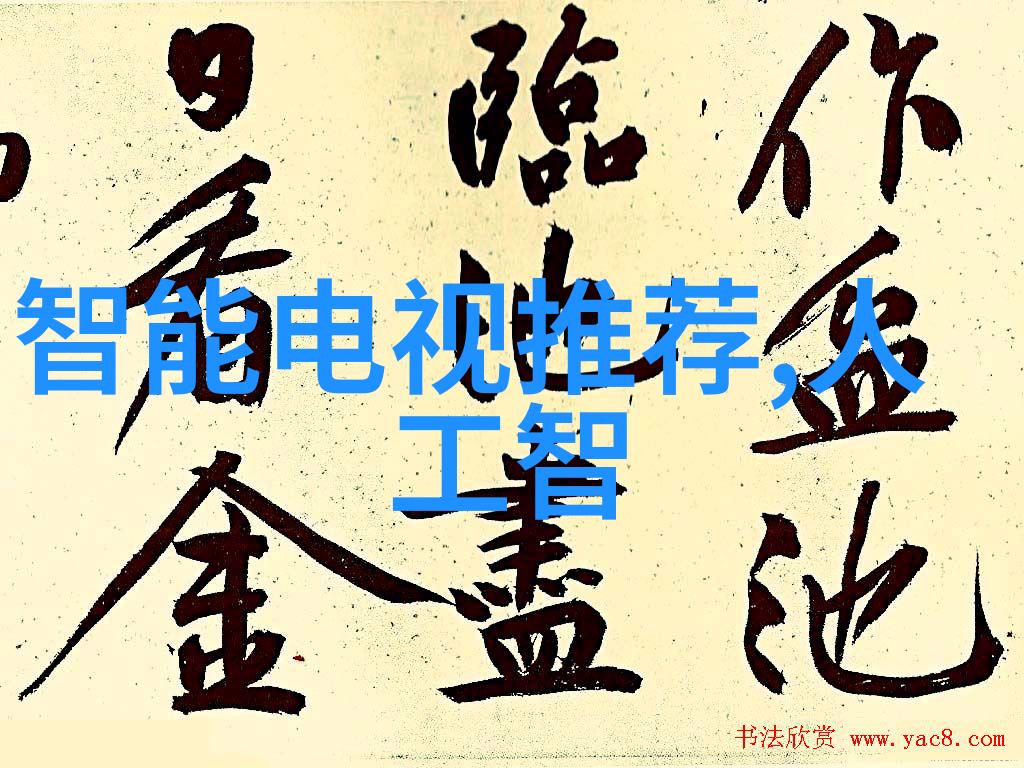 作盆池
臨盡
日看金
智能电视推荐,人
工智
书法欣赏 www.yac8.com